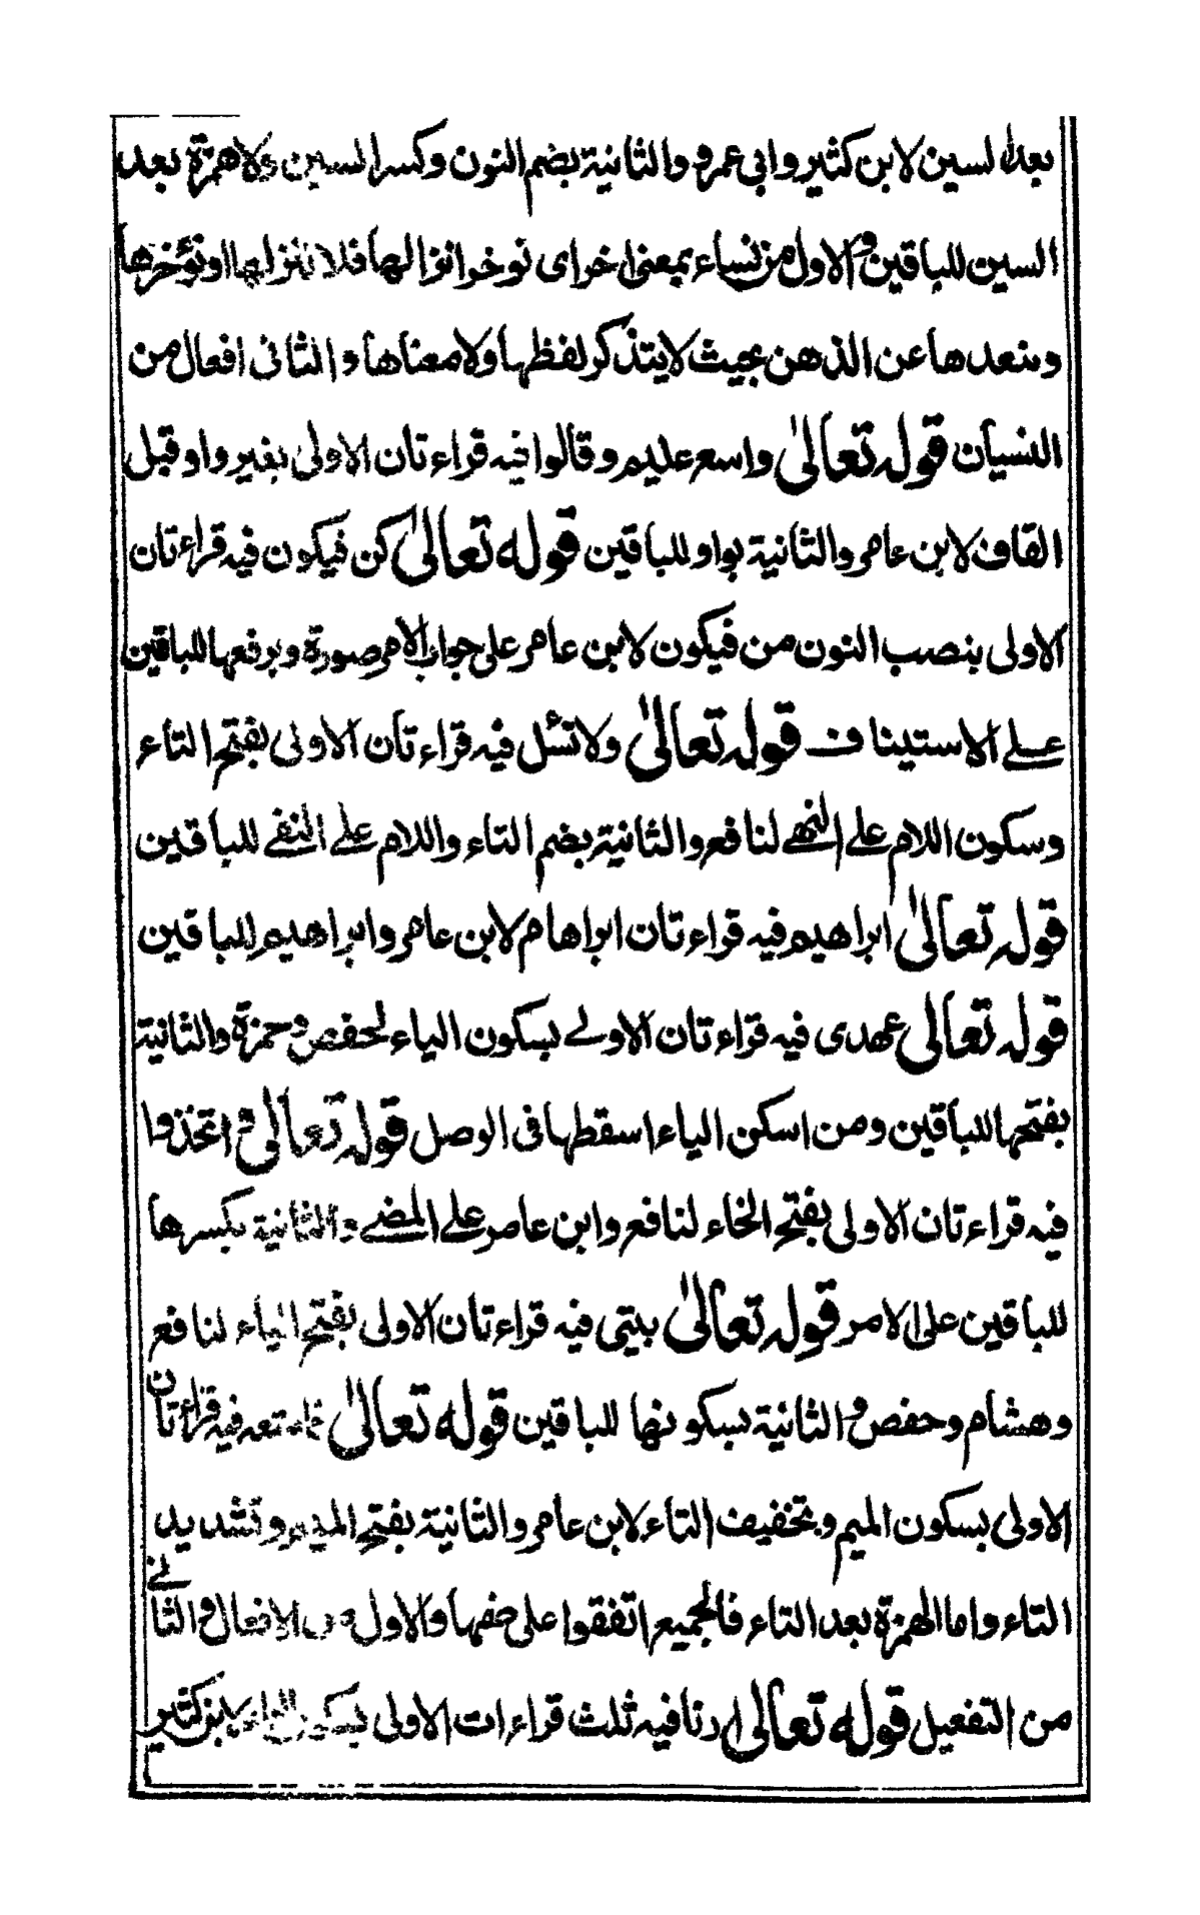 بعد السين لابن كثير وابي عمرو والثانية بضم النون وكسر السين ولا همزة بعد
السين للباقين والاول من نساء بمعنى اخر اى نوخر انزالها فلا ننزلها او نؤخرها
ونبعدها عن الذهن بحيث لا يتذكر لفظها ولا معناها والثانى افعال من
النسيان قوله تعالىٰ واسع عليم وقالوا فيه قراءتان الاولى بغير واو قبل
القاف لابن عامر والثانية بواو للباقين قوله تعالىٰ كن فيكون فيه قراءتان
الاولى بنصب النون من فيكون لابن عامر على جواب الامر صورة وبرفعها للباقين
على الاستيناف قوله تعالىٰ ولا تسئل فيه قراءتان الاولى بفتح التاء
وسكون اللام على النهے لنافع والثانية بضم التاء واللام على النفے للباقين
قوله تعالىٰ ابراهيم فيه قراءتان ابراهام لابن عامر وابراهيم للباقين
قوله تعالى عهدى فيه قراءتان الاولے بسكون الياء لحفص وحمزة والثانية
بفتحها للباقين ومن اسكن الياء اسقطها فى الوصل قوله تعالى واتخذوا
فيه قراءتان الاولى بفتح الخاء لنافع وابن عامر على المضے والثانية بكسرها
للباقين على الامر قوله تعالىٰ بيتى فيه قراءتان الاولى بفتح الياء لنافع
وهشام وحفص والثانية بسكونها للباقين قوله تعالىٰ فامتعه فيه قراءتان
الاولى بسكون الميم وتخفيف التاء لابن عامر والثانية بفتح الميم وتشديد
التاء واما الهمزة بعد التاء فالجميع اتفقوا على ضمها والاول من الافعال والثانے
من التفعيل قوله تعالى ارنا فيه ثلث قراءات الاولى بسكون الراء لابن كثير